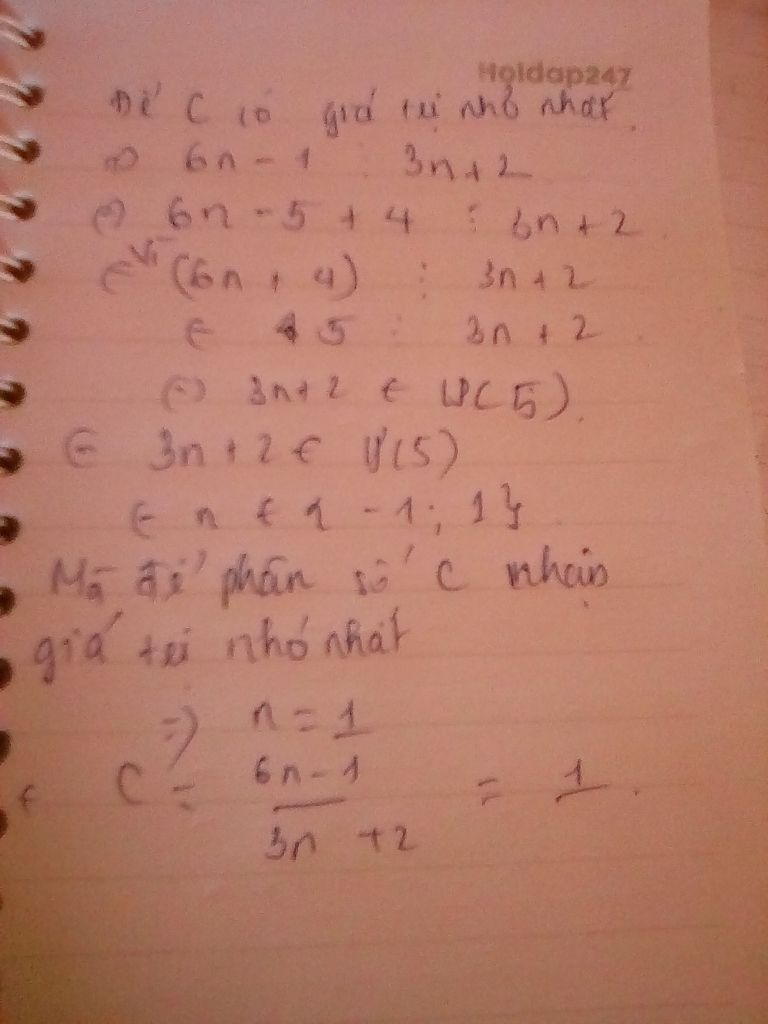 Hoidap247
Để C có giá trị nhỏ nhất.
=> 6n - 1 ⋮ 3n + 2
(=) 6n - 5 + 4 ⋮ 3n + 2
Vì (6n + 4) ⋮ 3n + 2
5 ⋮ 3n + 2
(=) 3n + 2 ∈ Ư(5).
3n + 2 ∈ Ư(5)
n ∈ { -1; 1}
Mà để phân số C nhận
giá trị nhỏ nhất
=) n = 1
C = 6n - 1 / 3n + 2 = 1.